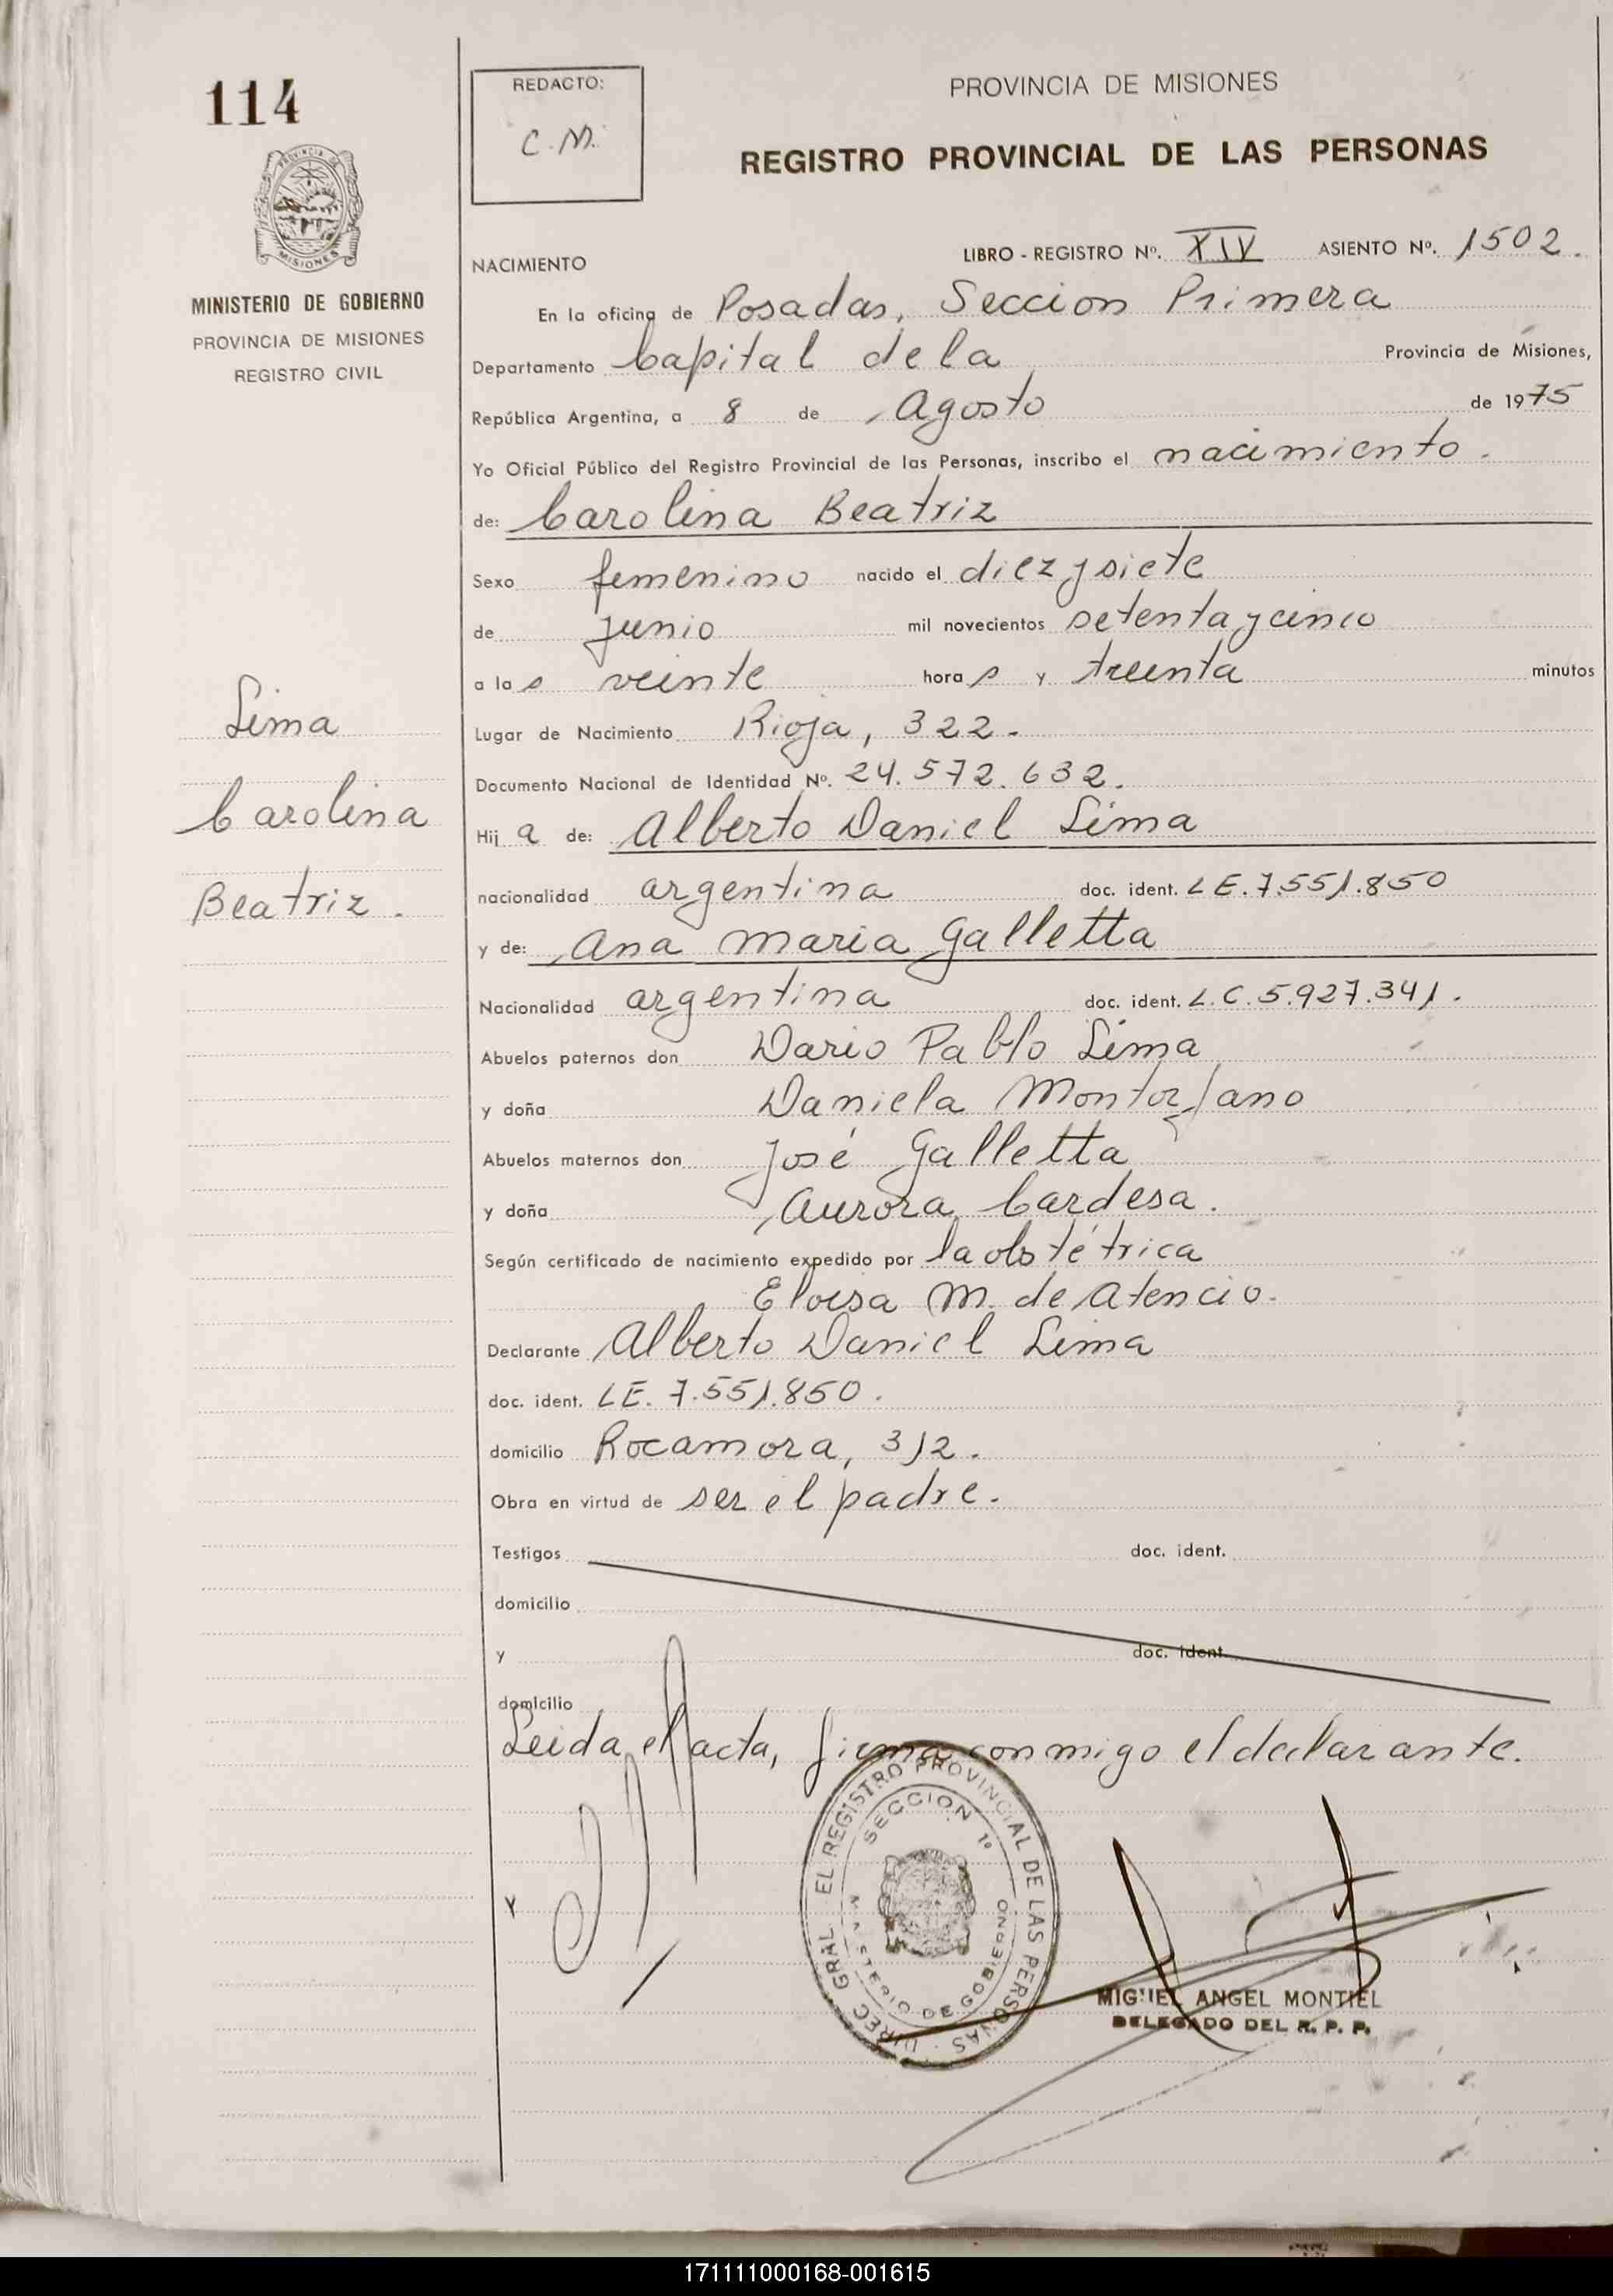 114
REDACTO:
C.M.
PROVINCIA DE MISIONES
REGISTRO PROVINCIAL DE LAS PERSONAS
PROVINCIA DE
MISIONES
MINISTERIO DE GOBIERNO
PROVINCIA DE MISIONES
REGISTRO CIVIL
NACIMIENTO LIBRO - REGISTRO Nº. XIV ASIENTO Nº. 1502.
En la oficina de Posadas, Seccion Primera
Departamento Capital de la Provincia de Misiones,
República Argentina, a 8 de Agosto de 1975
Yo Oficial Público del Registro Provincial de las Personas, inscribo el nacimiento.
de: Carolina Beatriz
Sexo femenino nacido el diez y siete
de junio mil novecientos setenta y cinco
a las veinte horas y treinta minutos
Lugar de Nacimiento Rioja, 322.
Documento Nacional de Identidad Nº. 24.572.632.
Hija de: Alberto Daniel Lima
nacionalidad argentina doc. ident. LE. 7.551.850
y de: Ana Maria Galletta
Nacionalidad argentina doc. ident. L.C. 5.927.341.
Abuelos paternos don Dario Pablo Lima
y doña Daniela Montorfano
Abuelos maternos don José Galletta
y doña Aurora Cardesa.
Según certificado de nacimiento expedido por la obstétrica
Eloisa M. de Atencio.
Declarante Alberto Daniel Lima
doc. ident. LE. 7.551.850.
domicilio Rocamora, 312.
Obra en virtud de ser el padre.
Testigos doc. ident.
domicilio
y doc. ident.
domicilio
Leida el acta, firma conmigo el declarante.
Lima
Carolina
Beatriz.
DIREC. GRAL. EL REGISTRO PROVINCIAL DE LAS PERSONAS
SECCION 1º
MINISTERIO DE GOBIERNO
MIGUEL ANGEL MONTIEL
DELEGADO DEL R. P. P.
171111000168-001615